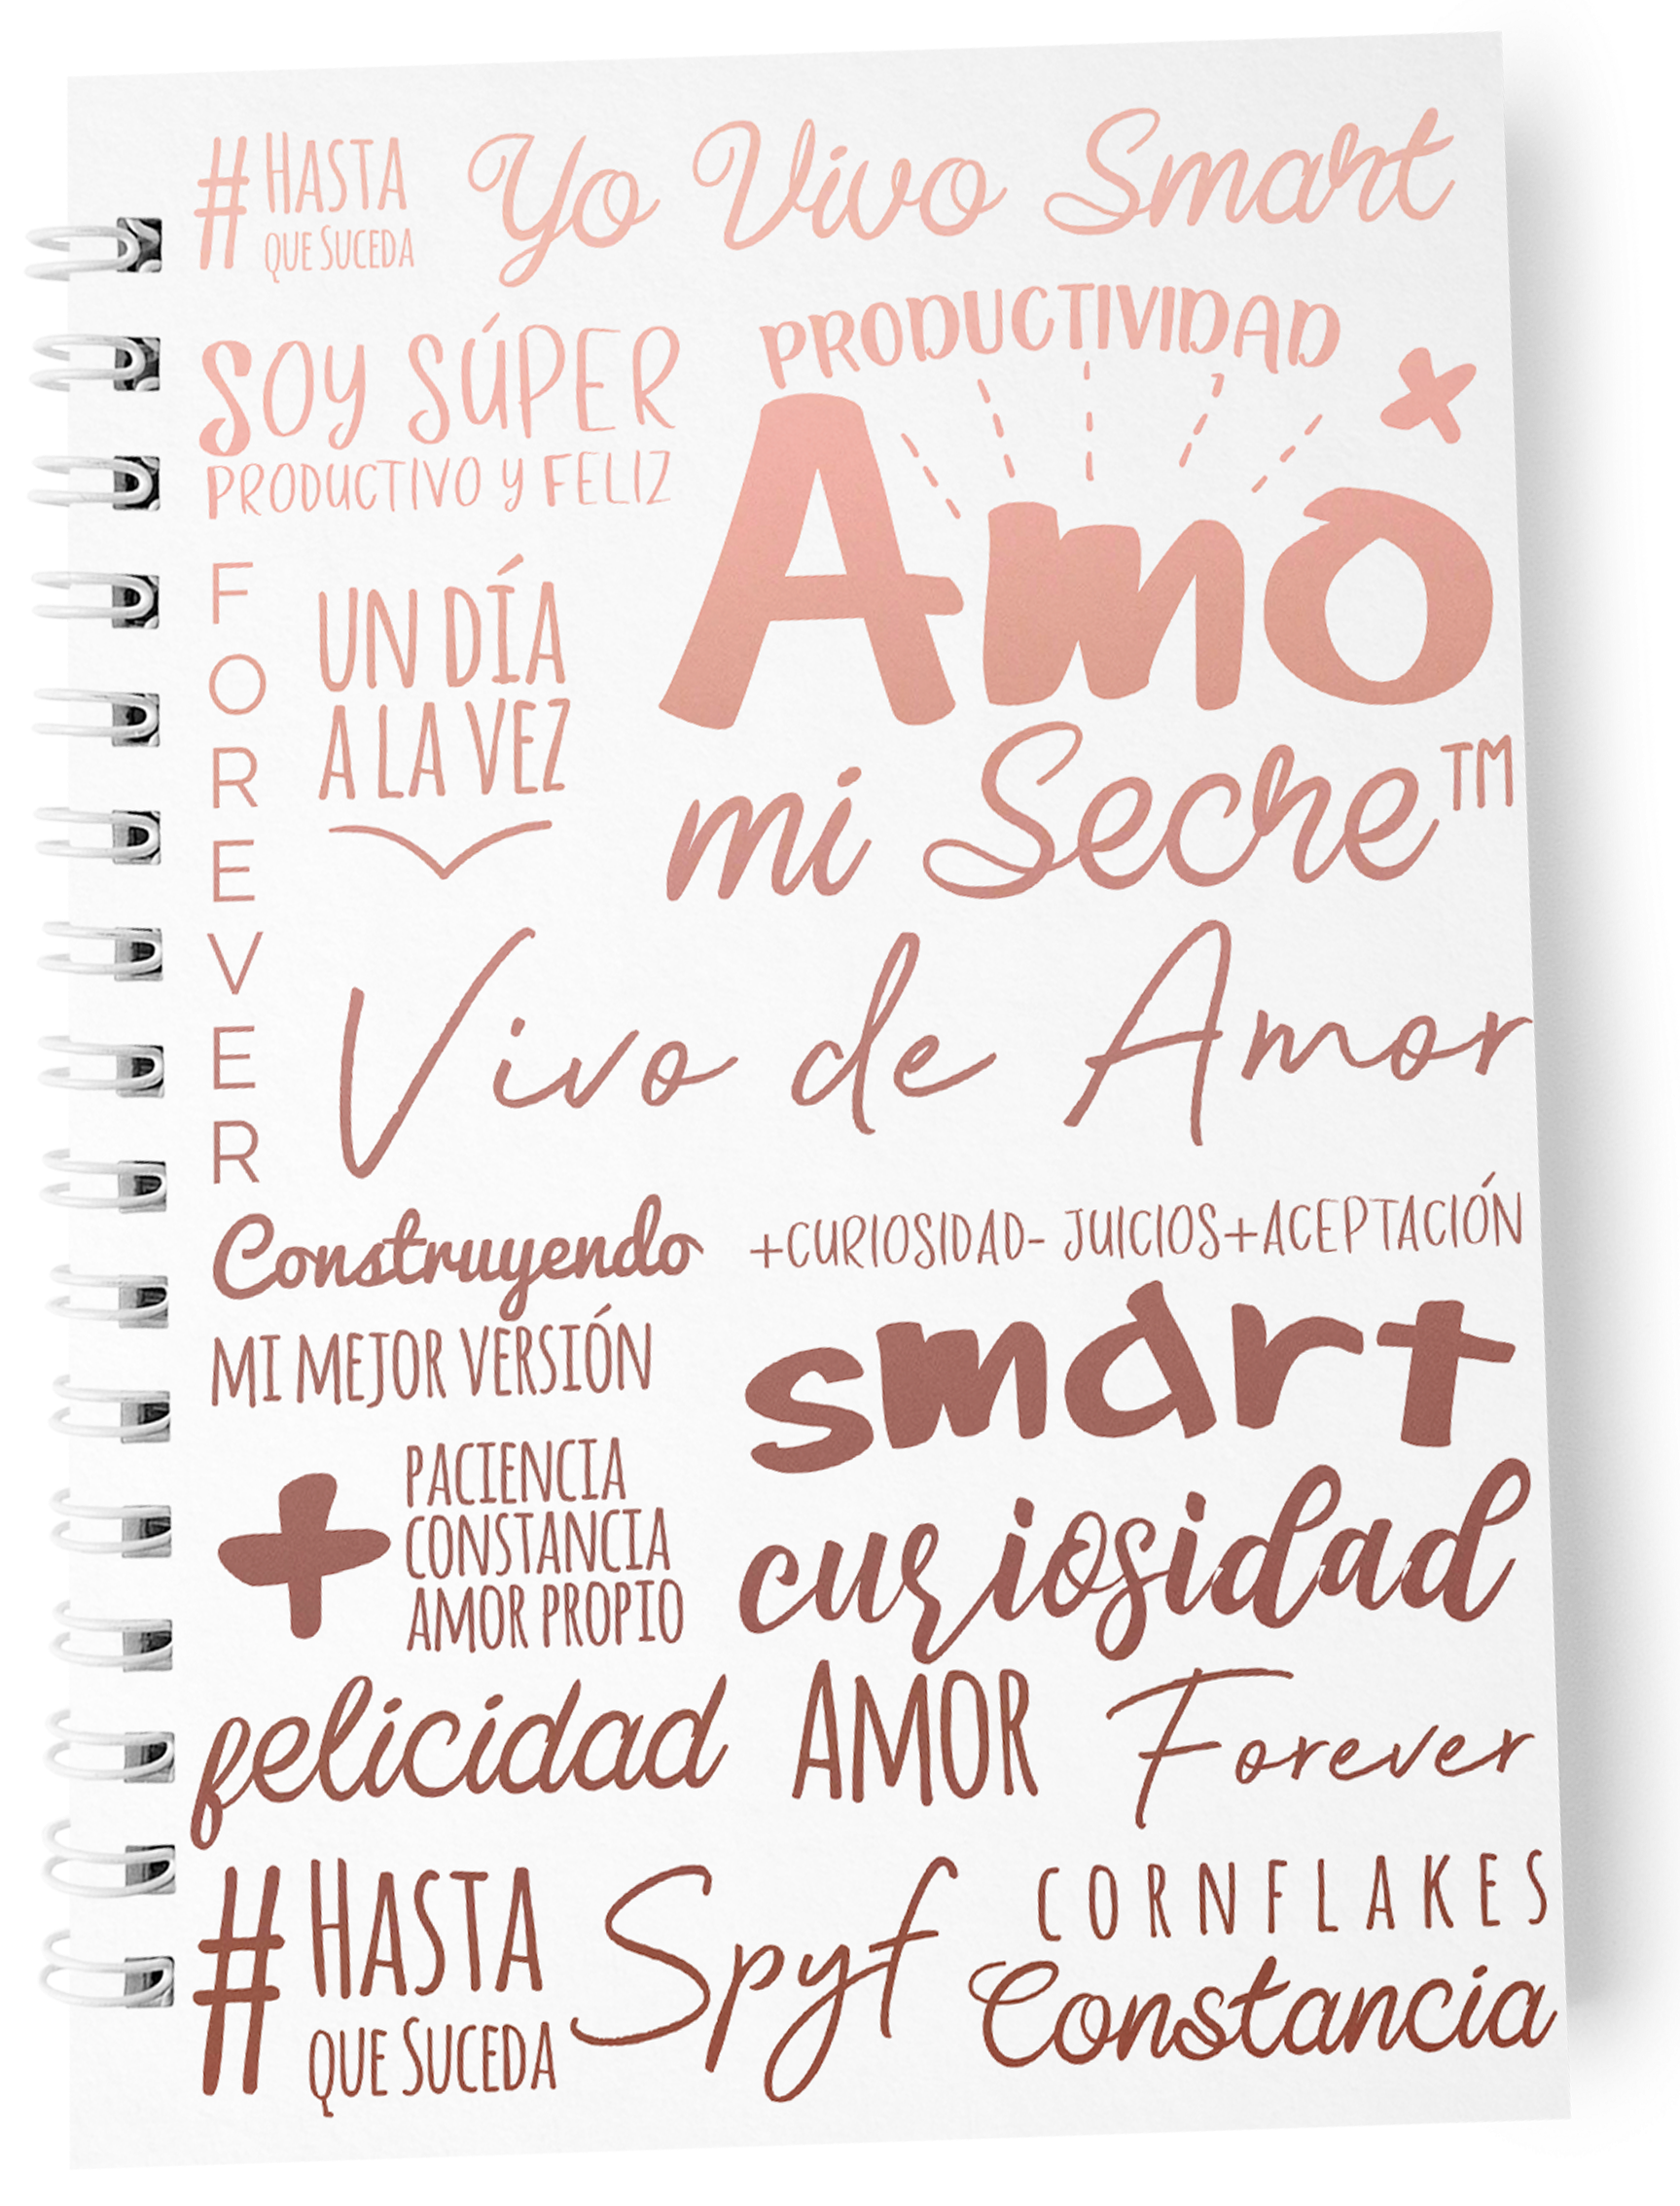 #HASTA
QUE SUCEDA
Yo Vivo Smart
SOY SÚPER
PRODUCTIVO Y FELIZ
PRODUCTIVIDAD
Amo
mi Secre™
FOREVER
UN DÍA
A LA VEZ
Vivo de Amor
Construyendo
MI MEJOR VERSIÓN
+CURIOSIDAD- JUICIOS+ACEPTACIÓN
smart
curiosidad
+ PACIENCIA
CONSTANCIA
AMOR PROPIO
felicidad
AMOR
Forever
#HASTA
QUE SUCEDA
Spyf
CORNFLAKES
Constancia